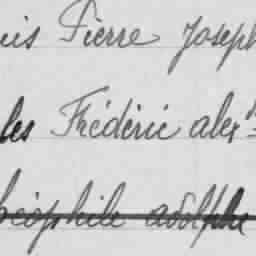 uis Pierre Joseph
les Frédéric alex
héophile adolphe